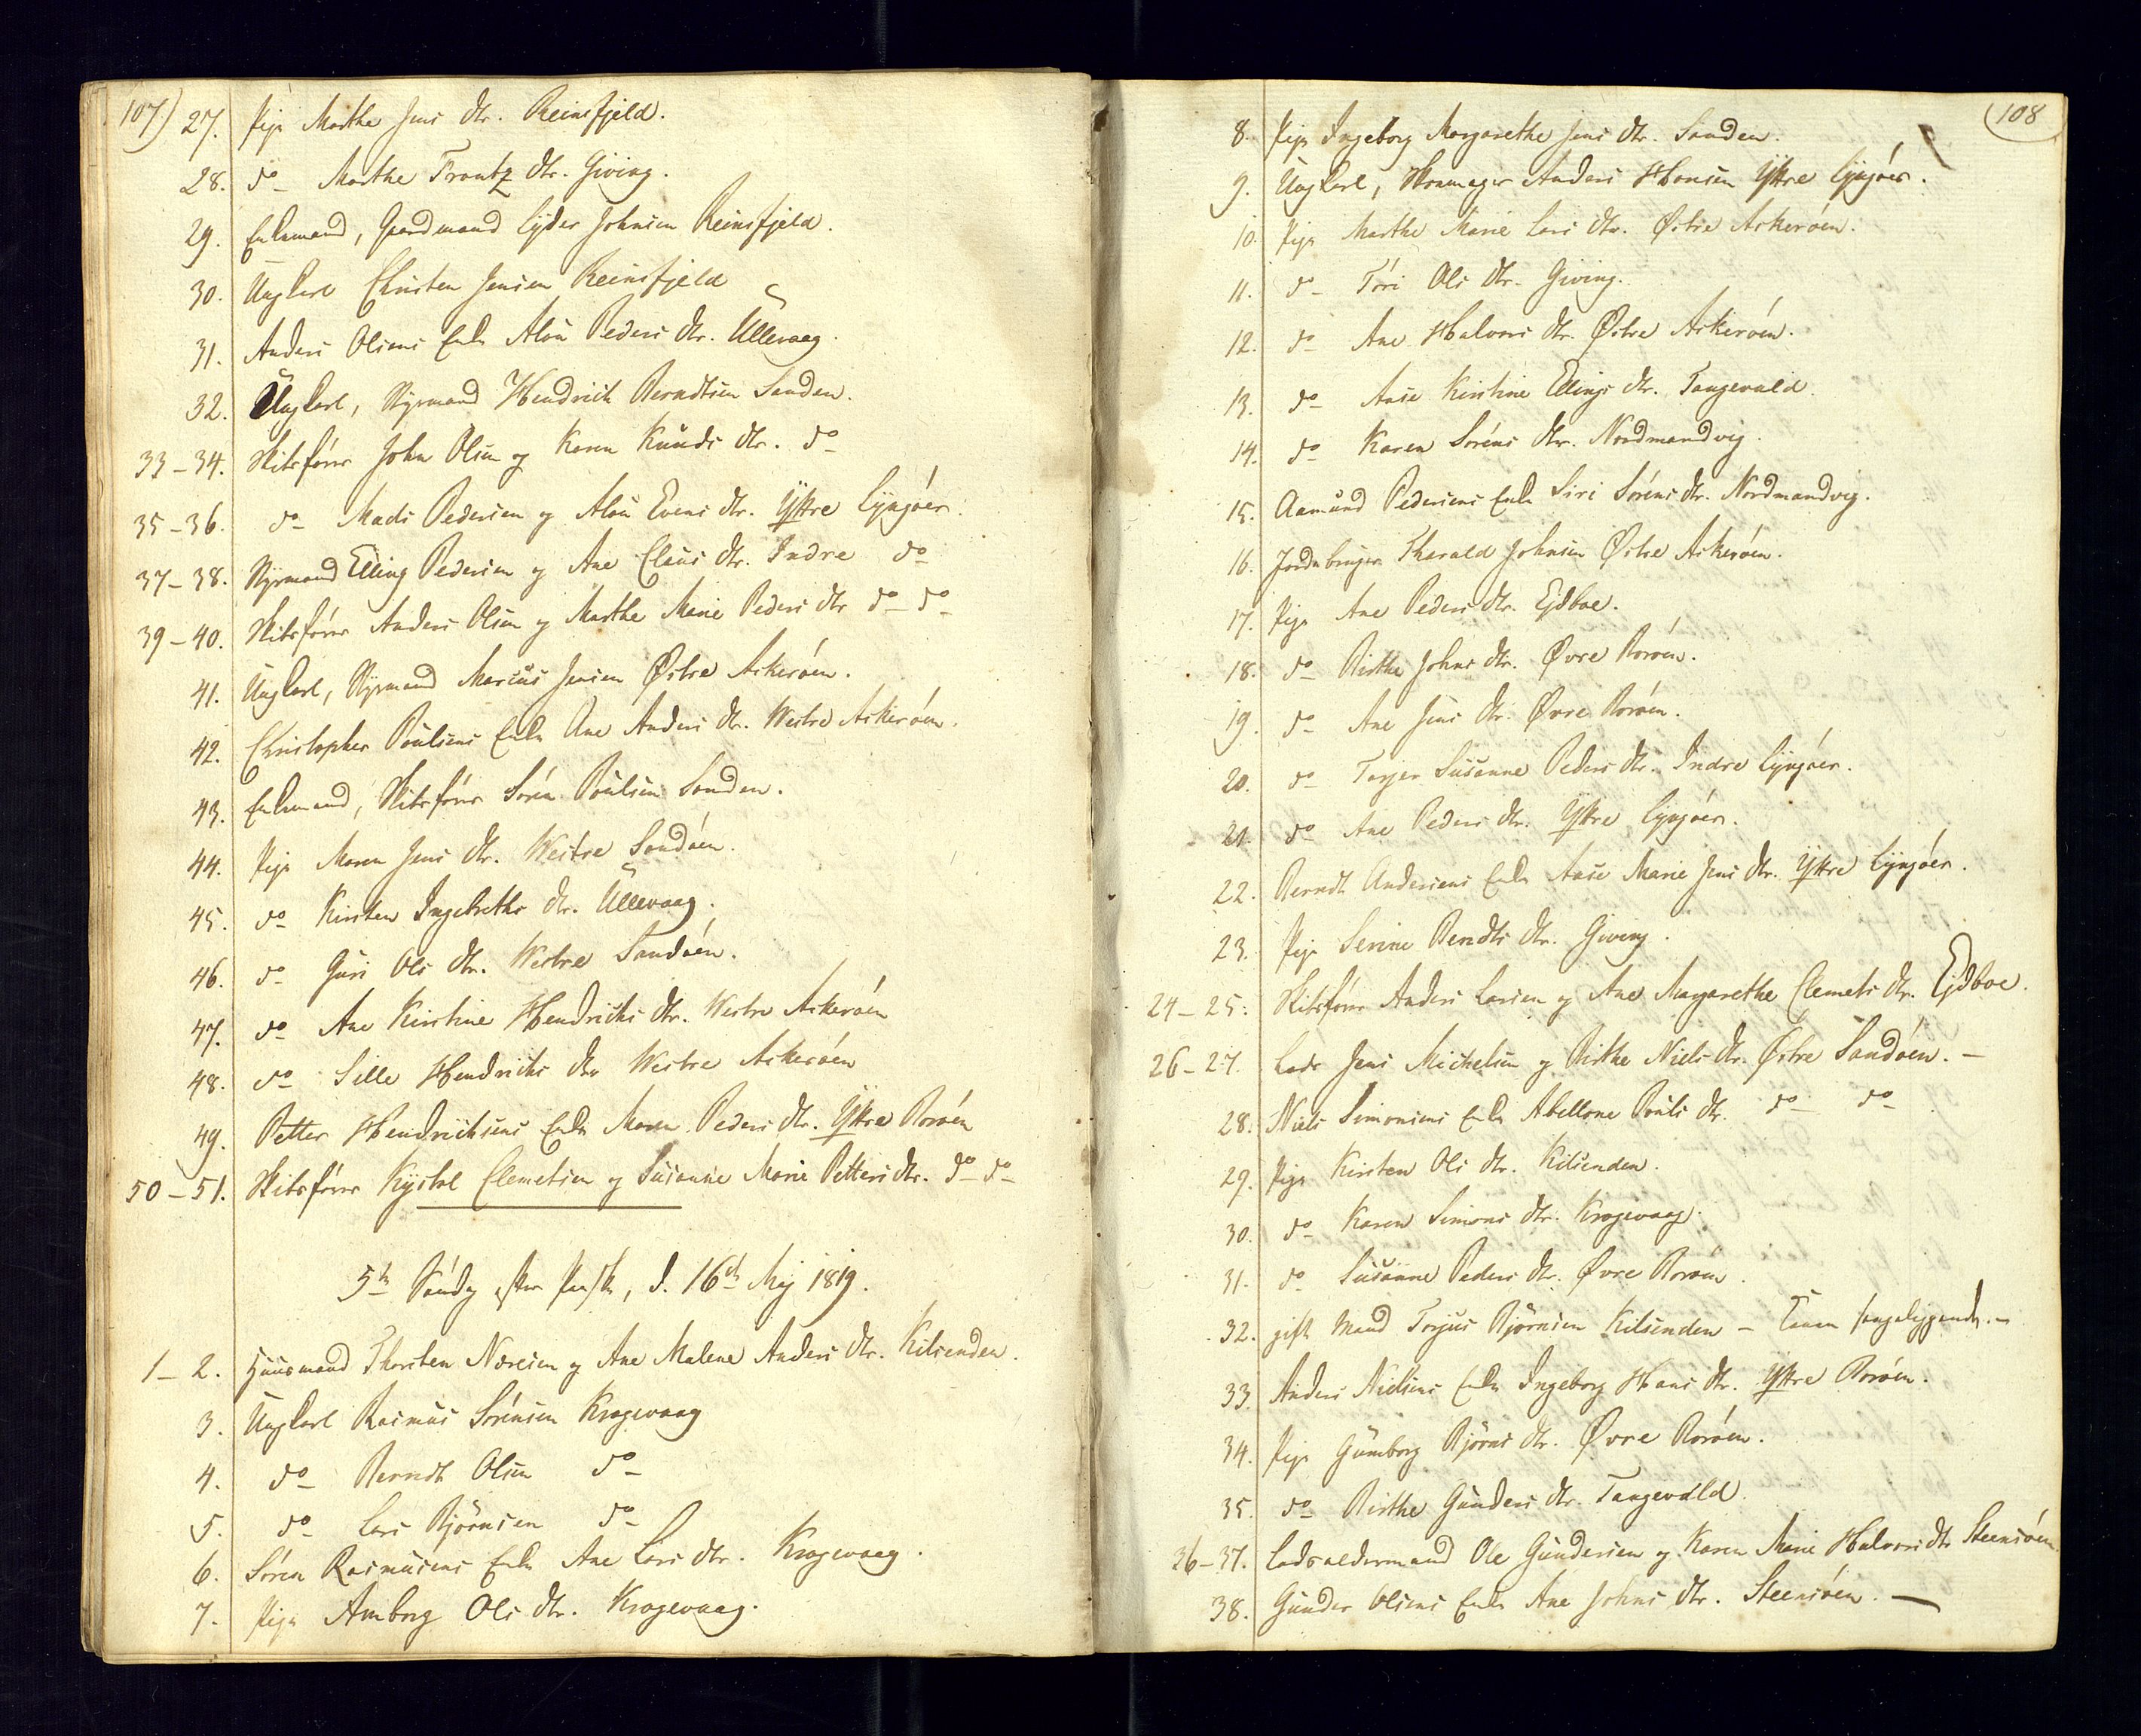 107)
27. Pige Marthe Jens dtr. Reinsfjeld.
28. do Marthe Frantz dtr. Giving.
29. Enkemand, Gaardmand Eyder Johnsen Reinsfjeld.
30. Ungkarl Christen Jensen Reinsfjeld
31. Anders Olsens Enke Alou Peders dtr. Ullevaag.
32. Ungkarl, Styrmand Hendrich Berndtsen Sanden.
33-34. Skibsfører John Olsen og Karen Knuds dtr. do
35-36. do Mads Pedersen og Alou Evens dtr. Yttre Lyngøer.
37-38. Styrmand Elling Pedersen og Ane Claus dtr. Indre do
39-40. Skibsfører Anders Olsen og Marthe Marie Peders dtr do do
41. Ungkarl, Styrmand Marcus Jensen Østre Askerøen.
42. Christopher Poulsens Enke Ane Anders dtr. Westre Askerøen.
43. Enkemand, Skibsfører Søren Poulsen Sanden.
44. Pige Maren Jens dtr. Westre Sandøen.
45. do Kirsten Ingebreths dtr. Ullevaag.
46. do Guri Ols dtr. Westre Sandøen.
47. do Ane Kirstine Hendrichs dtr. Westre Askerøen
48. do Sille Hendrichs dtr Westre Askerøen
49. Petter Hendrichsens Enke Maren Peders dtr. Yttre Borøen
50-51. Skibsfører Kystol Clemetsen og Susanne Marie Petters dtr. do do
5te Søndag efter Paaske, d. 16de Maj 1819.
1-2. Huusmand Thorsten Næresen og Ane Malene Anders dtr. Kilsenden.
3. Ungkarl Rasmus Sørensen Krogevaag
4. do Berndt Olsen do
5. do Lars Bjørnsen do
6. Søren Rasmusens Enke Ane Lars dtr. Krogevaag.
7. Pige Amborg Ols dtr. Krogevaag.
108
8. Pige Ingeborg Margarethe Jens dtr. Sanden.
9. Ungkarl, Skomager Anders Hansen Yttre Lyngøer.
10. Pige Marthe Marie Lars dtr. Østre Askerøen.
11. do Tøri Ols dtr. Giving.
12. do Ane Halvors dtr. Østre Askerøen.
13. do Anse Kirstine Ellings dtr. Tangevald.
14. do Karen Sørens dtr. Nordmandvig.
15. Aamund Pedersens Enke Siri Sørens dtr. Nordmandvig.
16. Jordebruger Tharald Johnsen Østre Askerøen.
17. Pige Ane Peders dtr. Ejdboe.
18. do Birthe Johns dtr. Øvre Borøen.
19. do Ane Jens dtr. Øvre Borøen.
20. do Torjer Susanne Peders dtr. Indre Lyngøer.
21. do Ane Peders dtr. Yttre Lyngøer.
22. Berndt Andersens Enke Anse Marie Jens dtr. Yttre Lyngøer.
23. Pige Serine Berndts dtr. Giving.
24-25. Skibsfører Anders Larsen og Ane Margarethe Clemets dtr. Ejdboe.
26-27. Lods Jens Michelsen og Birthe Niels dtr. Østre Sandøen.-
28. Niels Simonsens Enke Abellone Pouls dtr. do do
29. Pige Kirsten Ols dtr. Kilsenden.
30. do Karen Simons dtr. Krogevaag.
31. do Susanne Peders dtr. Øvre Borøen.
32. gift Mand Torjus Bjørnsen Kilsenden - sengeliggende.-
33. Anders Nielsens Enke Ingeborg Hans dtr. Yttre Borøen.
34. Pige Gumborg Bjørns dtr. Øvre Borøen.
35. do Birthe Gunders dtr. Tangevald.
36-37. Lodsaldermand Ole Gundersen og Karen Marie Halvors dtr Steensøen.
38. Gunder Olsens Enke Ane Johns dtr. Steensøen. -